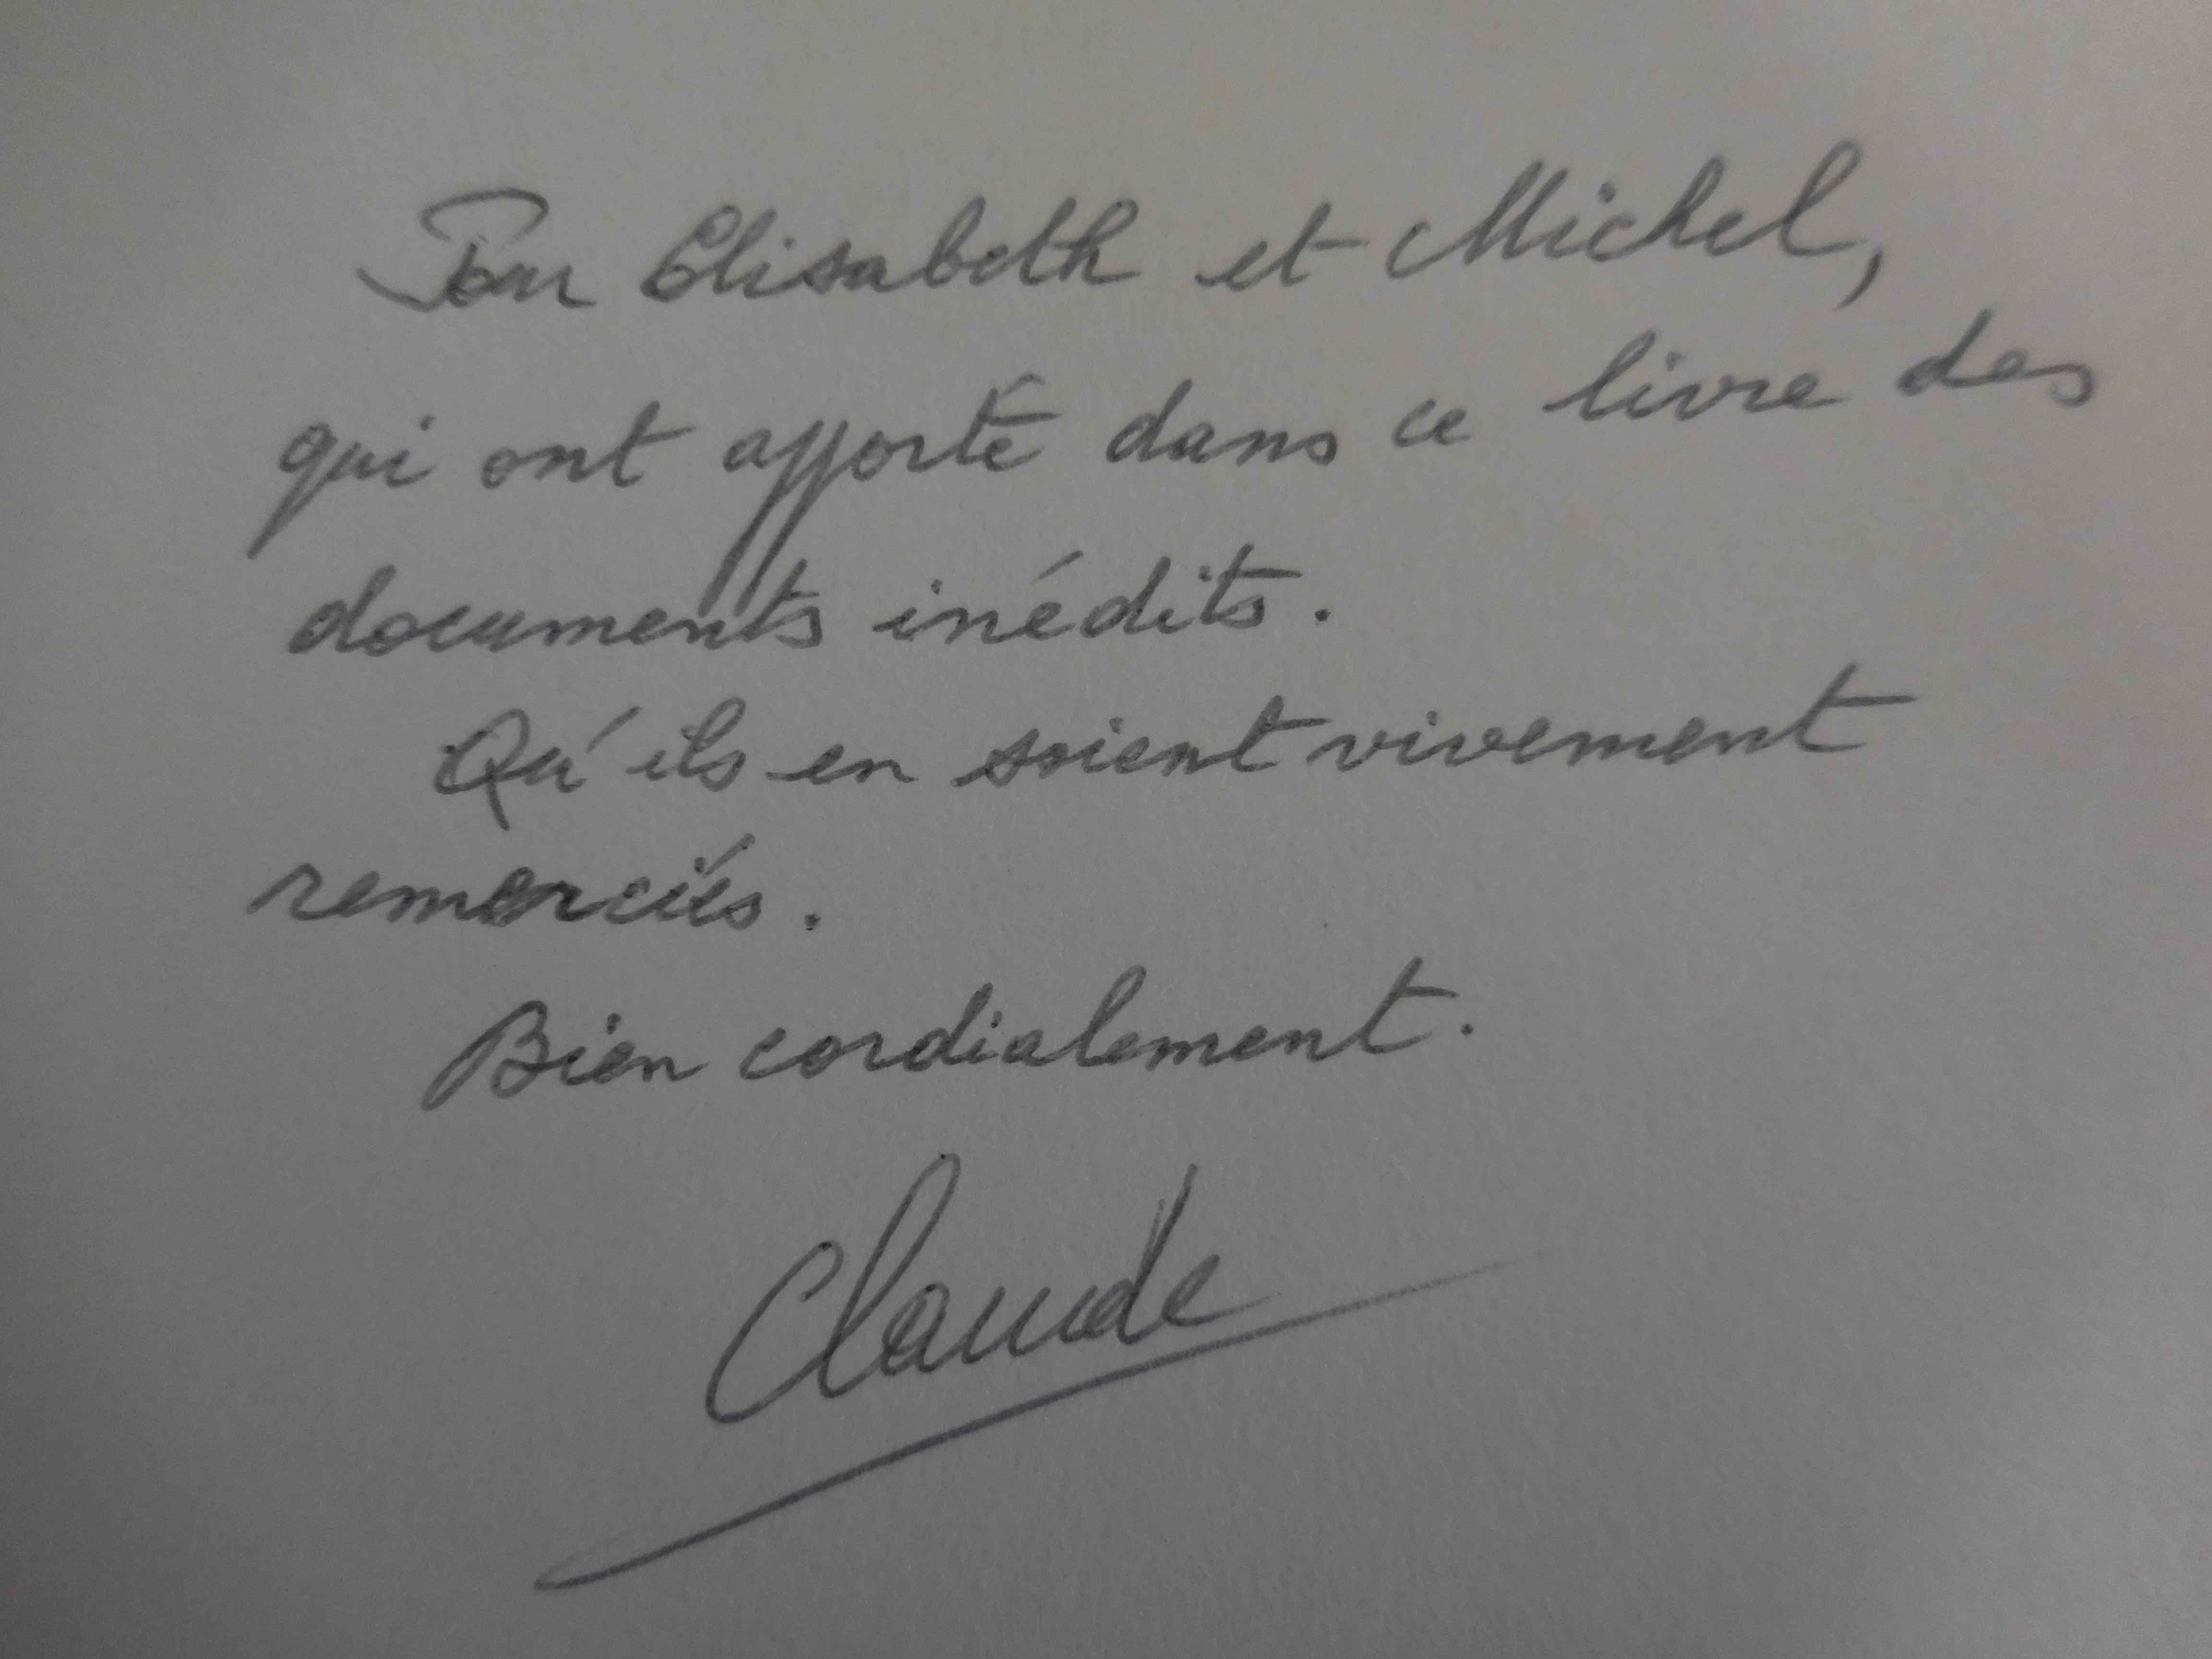 Pour Elisabeth et Michel,
qui ont apporté dans ce livre des
documents inédits.
Qu'ils en soient vivement
remerciés.
Bien cordialement.
Claude